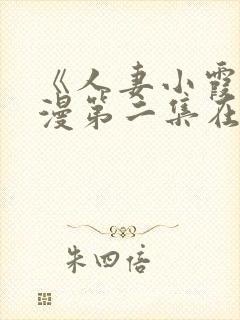 《人妻小霞
漫第二集在
朱四倍